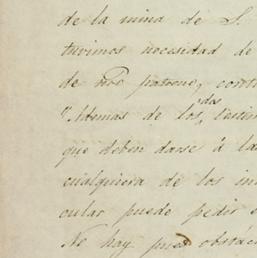 de la mina de S.
tuvimos necesidad de
de nro patrono, contr
"Ademas de los, dos testim
que deben darse á la
cualquiera de los in
cular puede pedir e
No hay pues obstác